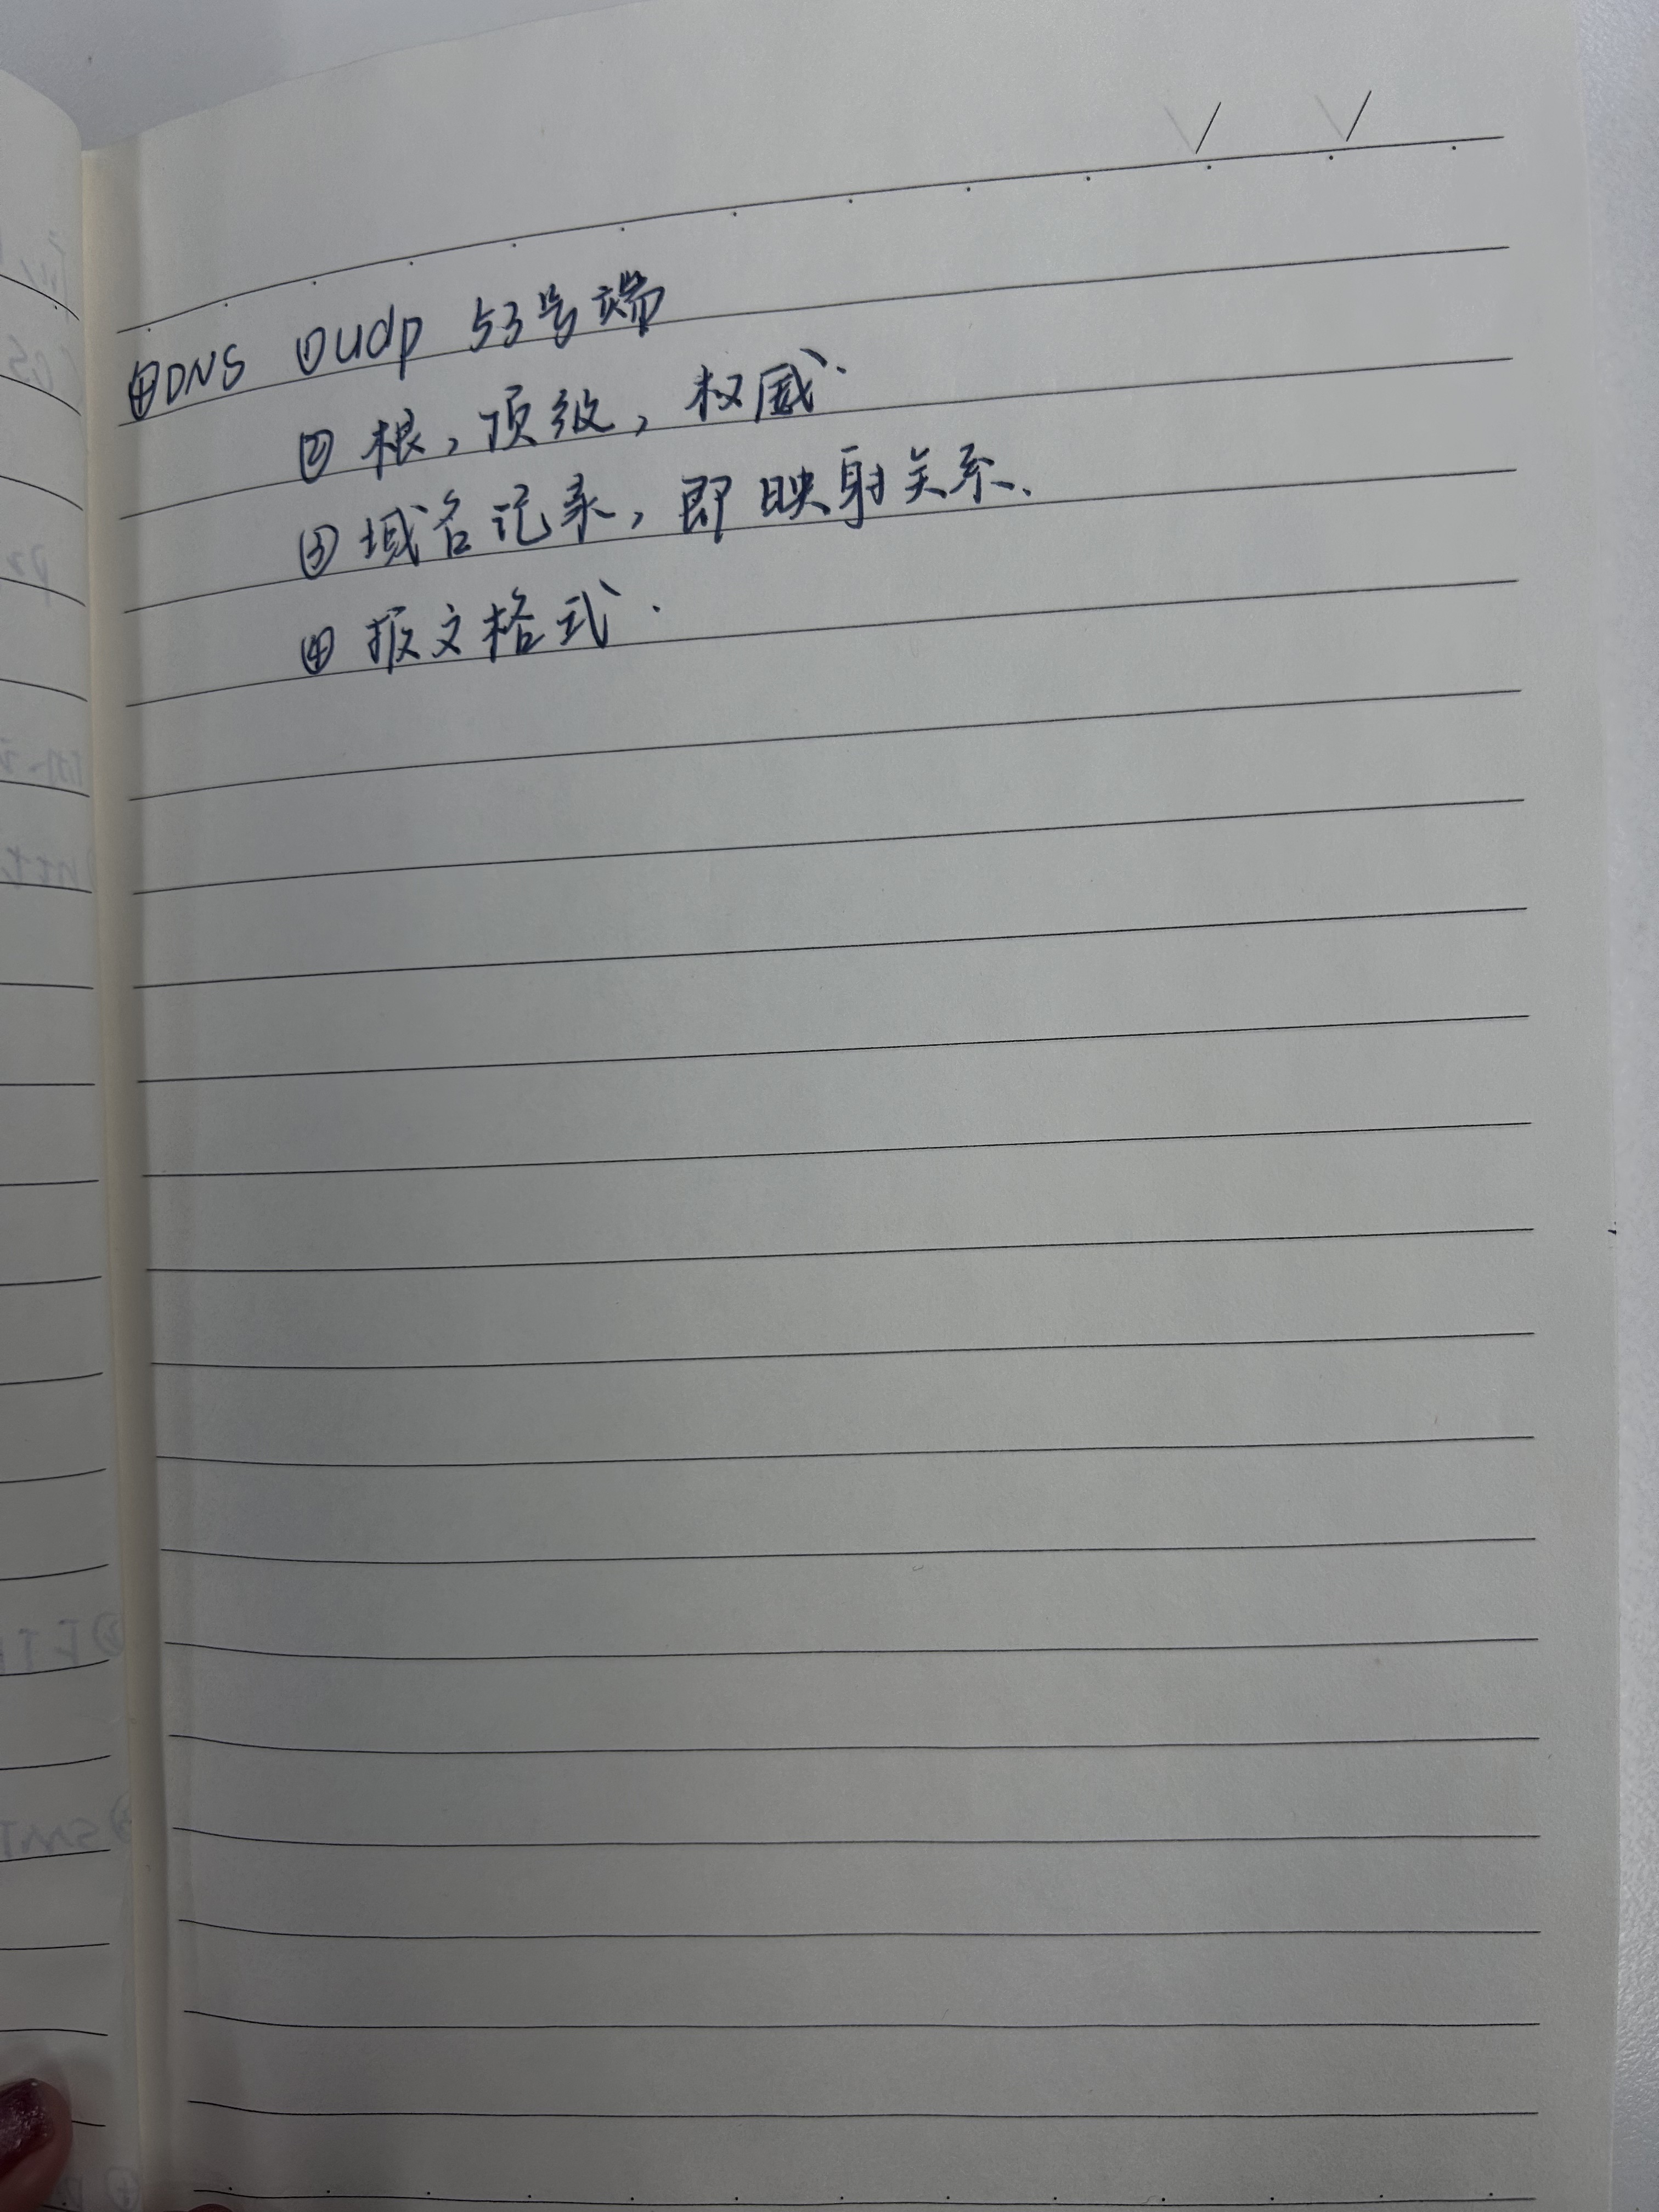 ④DNS ①udp 53号端
②根,顶级,权威.
③域名记录,即映射关系.
④报文格式.